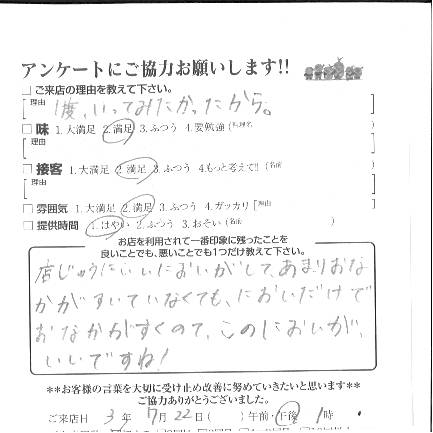 アンケートにご協力お願いします!!
□ご来店の理由を教えて下さい。
理由 1度、いってみたかったから。
□味 1.大満足 2.満足 3.ふつう 4.要勉強(料理名 )
理由
□接客 1.大満足 2.満足 3.ふつう 4.もっと考えて!!(名前 )
理由
□雰囲気 1.大満足 2.満足 3.ふつう 4.ガッカリ[理由 ]
□提供時間 1.はやい 2.ふつう 3.おそい(名前 )
お店を利用されて一番印象に残ったことを
良いことでも、悪いことでも1つだけ教えて下さい。
店じゅうにいいにおいがして、あまりおな
かがすいていなくても、においだけで
おなかがすくので、このにおいが、
いいですね!
**お客様の言葉を大切に受け止め改善に努めていきたいと思います**
ご協力ありがとうございました。
ご来店日 3年 7月 22日( ) 午前・午後 1時